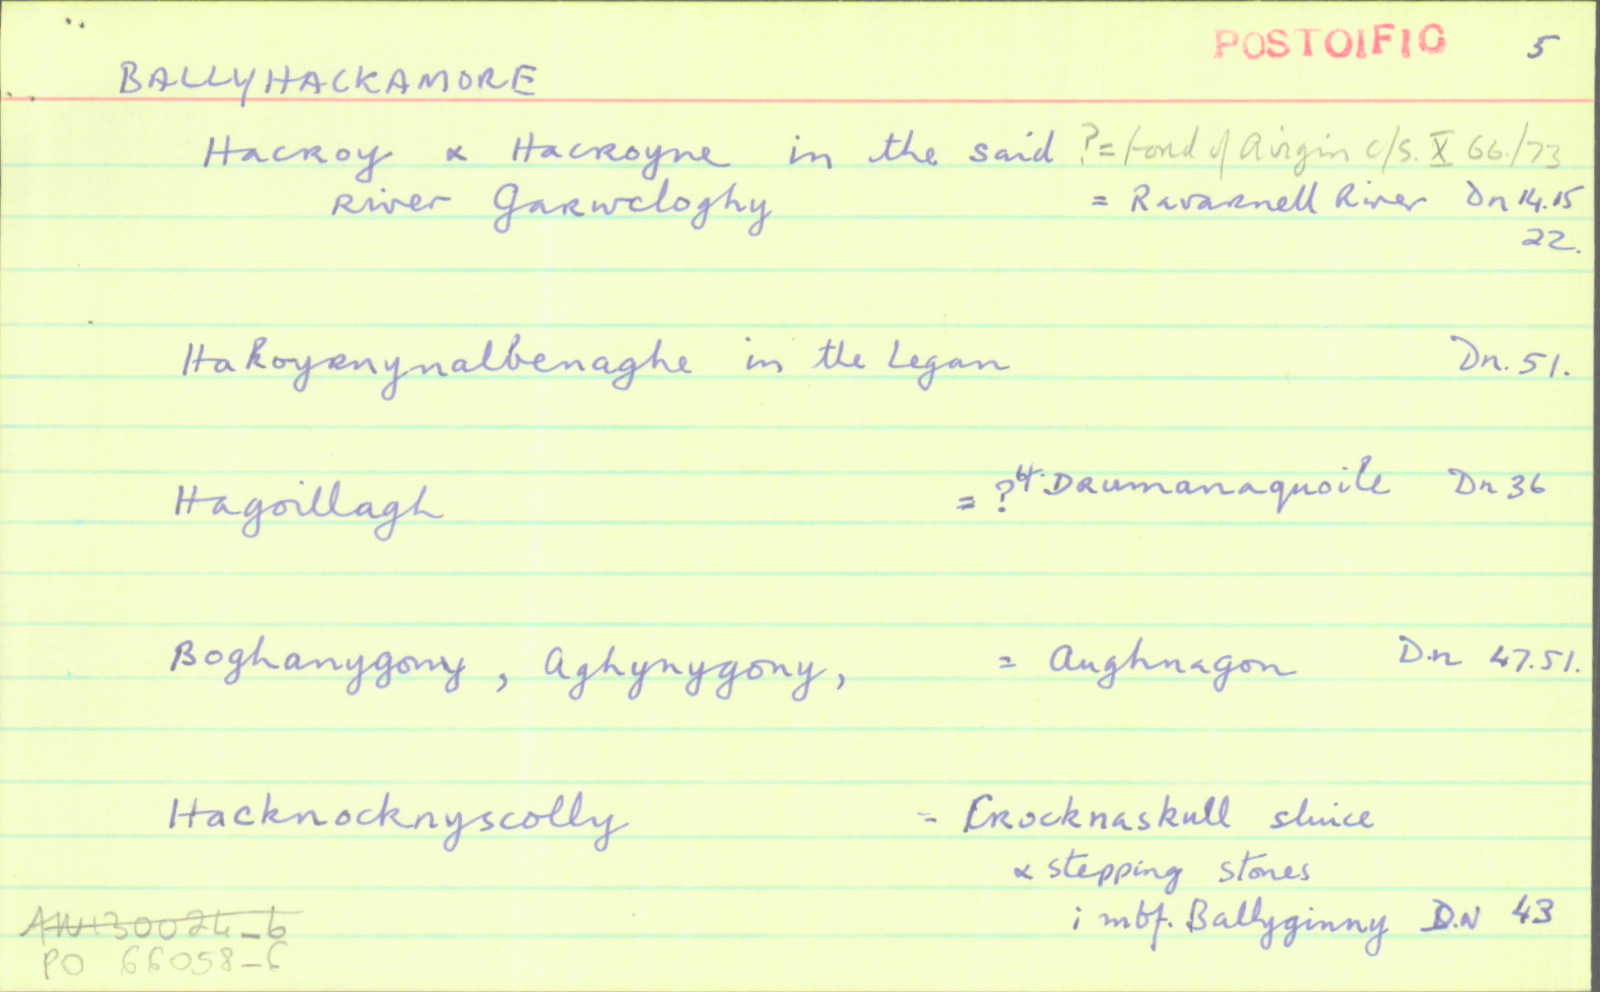 POSTOIFIG 5
BALLYHACKAMORE
Hacroy & Hacroyne in the said ?= ford of Airgin c/s. X 66./73
river Garwcloghy = Ravarnell River Dn 14.15
22.
HaRoyrnynalbenaghe in the Legan Dn. 51.
Hagoillagh = ? Drumanaquoile Dn 36
Boghanygony, Aghynygony, = Aughnagon Dn 47.51.
Hacknocknyscolly = Crocknaskull sluice
& stepping stones
i mbf. Ballyginny D.N 43
30024-b
PO 66058-6